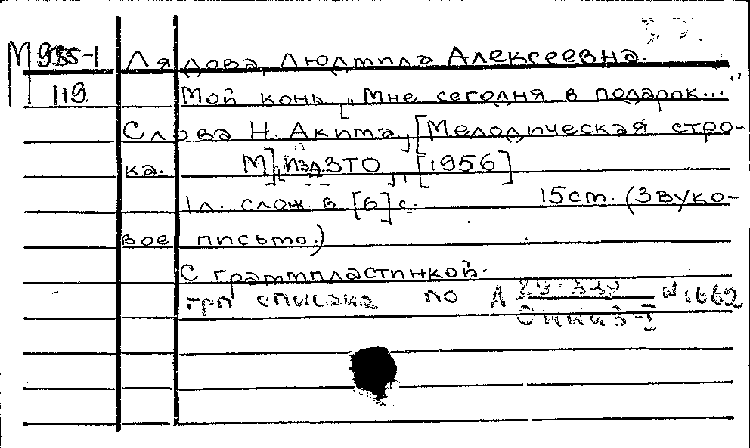 М 985-1 Лядова, Людмила Алексеевна.
119 Мой конь. Мне сегодня в подарок...
Слова Н. Акима, [Мелодическая стро-
ка. М], ИздЗТО, [1956]
1 л. слож в [6] с. 15 см. (Звуко-
вое письмо.)
С грампластинкой.
по № 1662